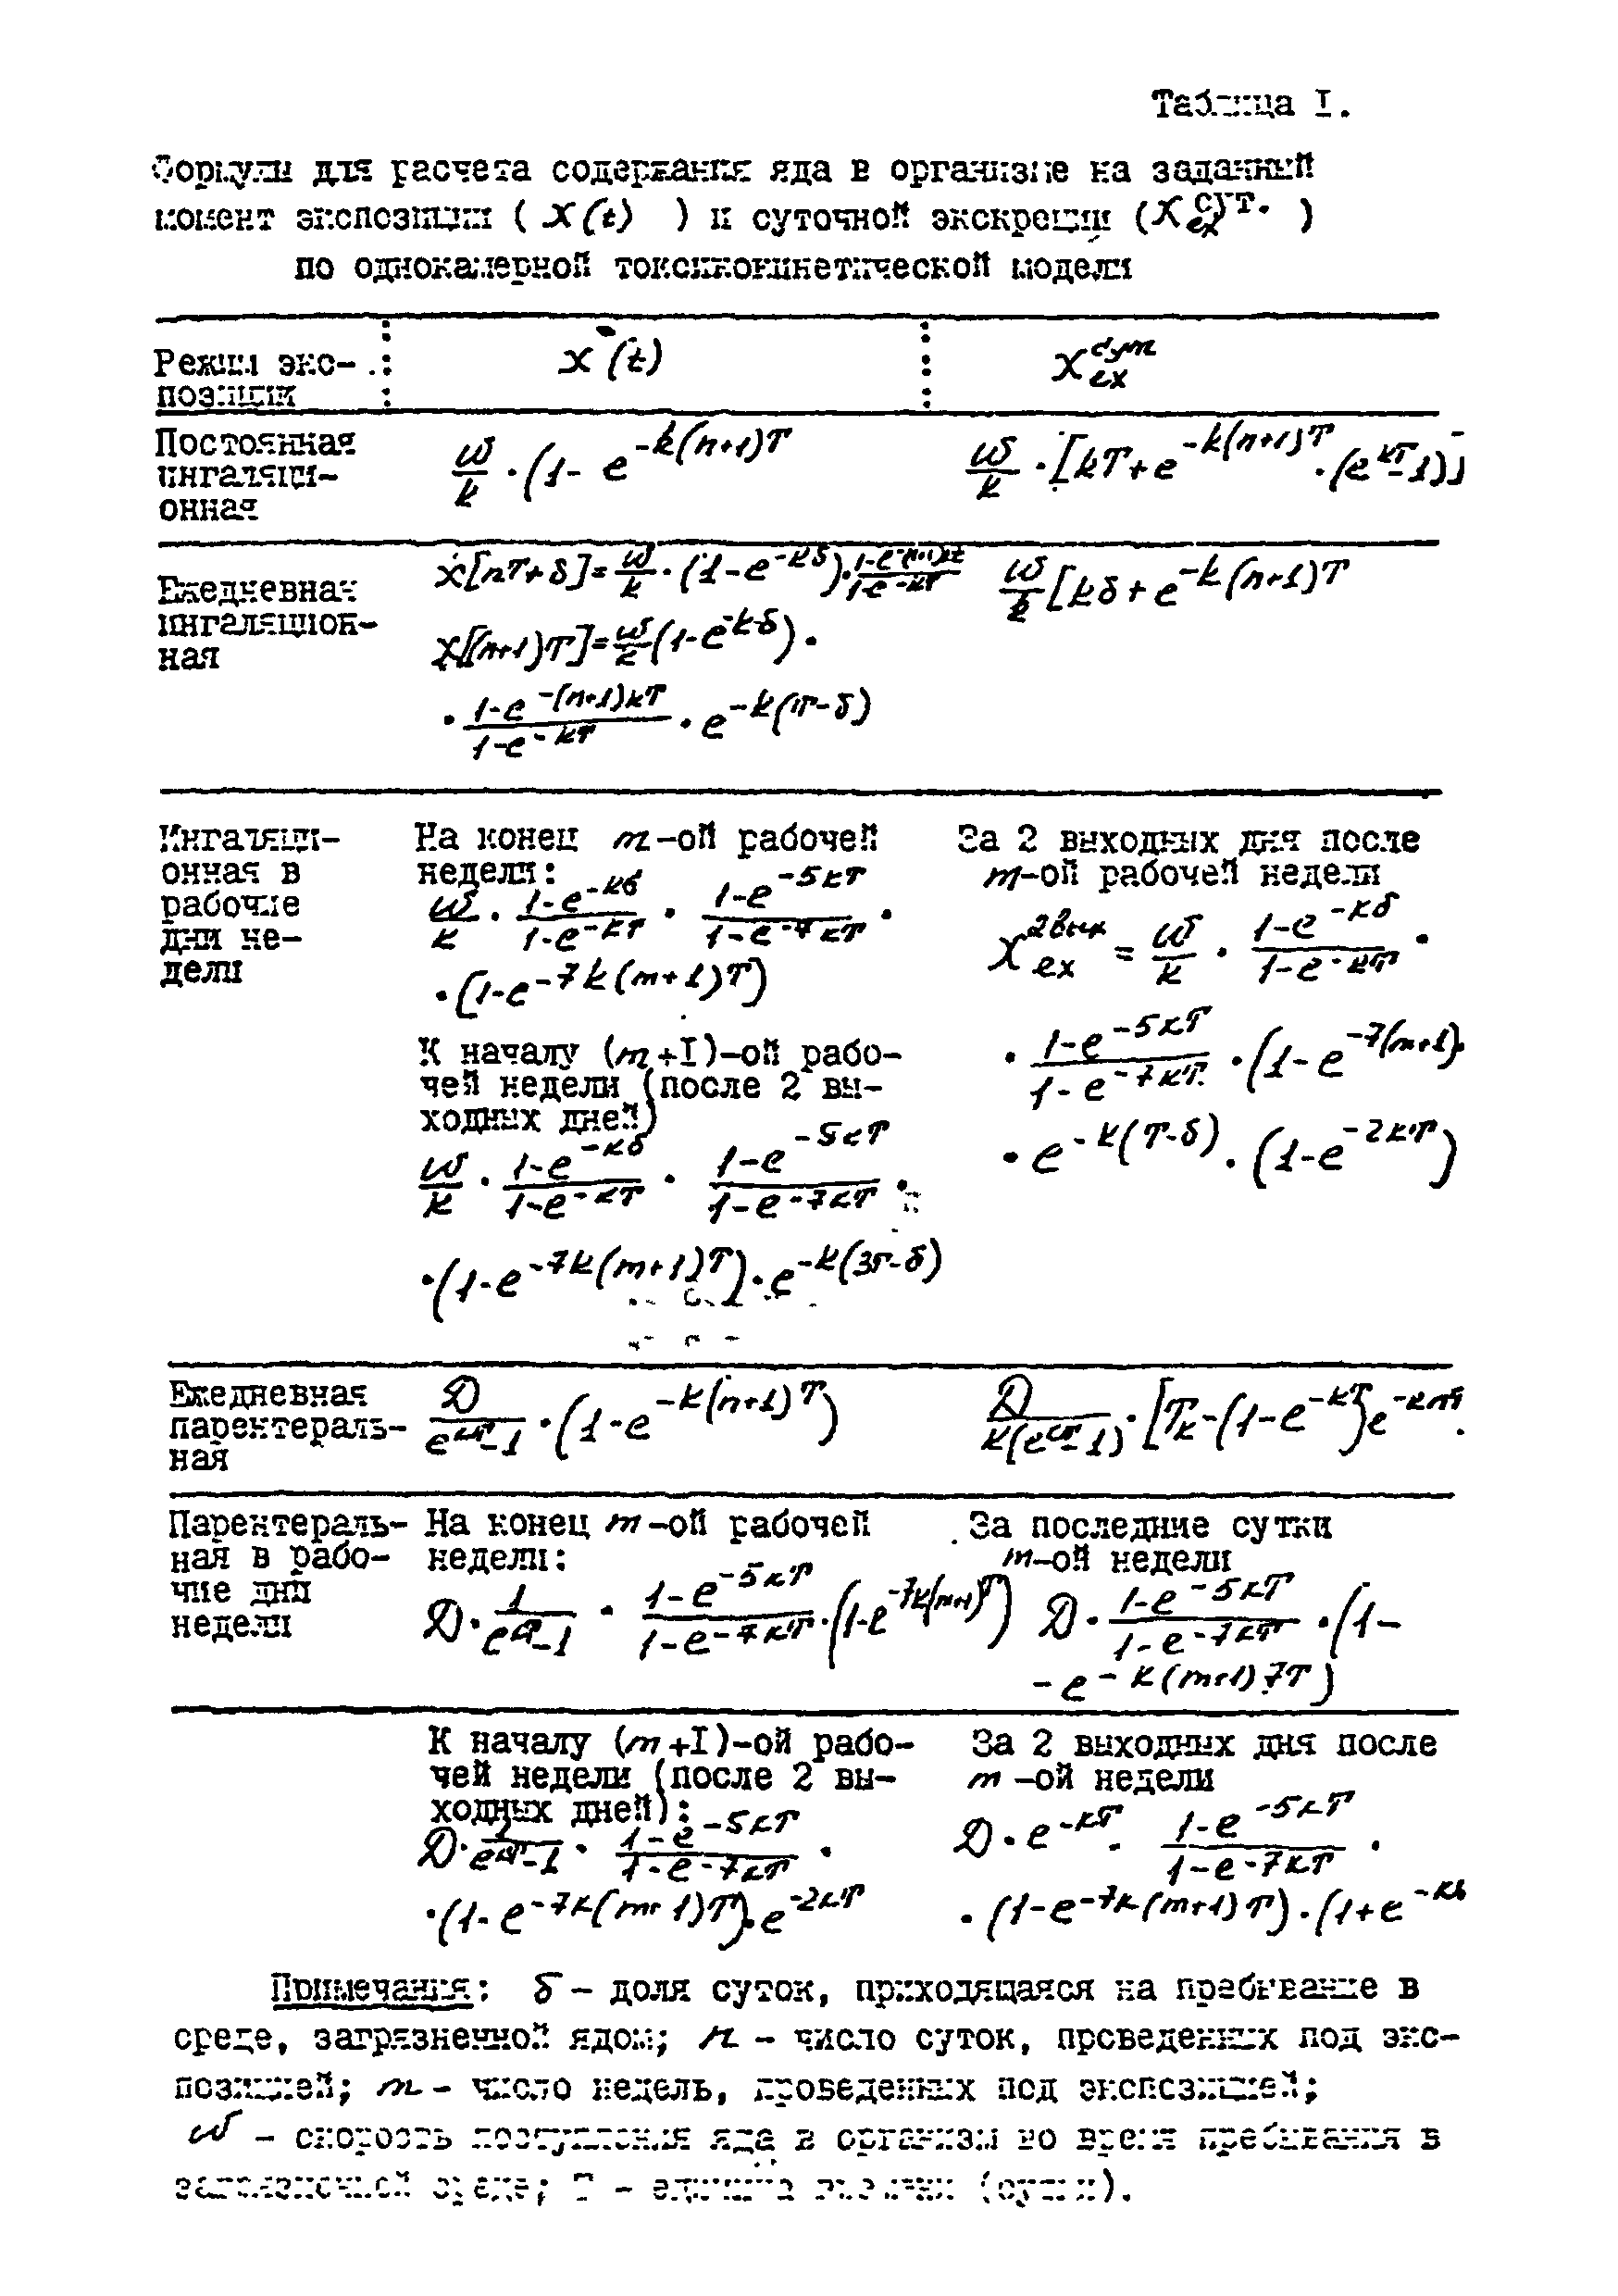 Таблица I.
Формулы для расчета содержания яда в организме на заданный
момент экспозиции ( X(t) ) и суточной экскреции (X_ex^сут. )
по однокамерной токсикокинетической модели
Режим экс-
позиции
X(t)
X_ex^сут
Постоянная
ингаляци-
онная
ω/k · (1- e^-k(n+1)T
ω/k · [kT+e^-k(n+1)T · (e^kT-1)]
Ежедневная
ингаляцион-
ная
X[nT+δ]= ω/k · (1-e^-kδ) · (1-e^-(n+1)kt)/(1-e^-kT)
X[(n+1)T]= ω/k (1-e^-kδ) ·
· (1-e^-(n+1)kT)/(1-e^-kT) · e^-k(T-δ)
ω/k [kδ + e^-k(n+1)T
Ингаляци-
онная в
рабочие
дни не-
дели
На конец m-ой рабочей
недели:
ω/k · (1-e^-kδ)/(1-e^-kT) · (1-e^-5kT)/(1-e^-7kT) ·
· (1-e^-7k(m+1)T)
К началу (m+I)-ой рабо-
чей недели (после 2 вы-
ходных дней)
ω/k · (1-e^-kδ)/(1-e^-kT) · (1-e^-5kT)/(1-e^-7kT) ·
· (1-e^-7k(m+1)T) · e^-k(3T-δ)
За 2 выходных дня после
m-ой рабочей недели
X_ex^2вых = ω/k · (1-e^-kδ)/(1-e^-kT) ·
· (1-e^-5kT)/(1-e^-7kT) · (1-e^-7(m+1)·
· e^-k(T-δ) · (1-e^-2kT)
Ежедневная
парентераль-
ная
D/(e^kT-1) · (1-e^-k(n+1)T)
D/(k(e^kT-1)) · [Tk-(1-e^-kT)e^-knT ·
Парентераль-
ная в рабо-
чие дни
недели
На конец m-ой рабочей
недели:
D · 1/(e^kT-1) · (1-e^-5kT)/(1-e^-7kT) · (1-e^-7k(m+1)T)
За последние сутки
m-ой недели
D · (1-e^-5kT)/(1-e^-7kT) · (1-
- e^-k(m+1)7T)
К началу (m+I)-ой рабо-
чей недели (после 2 вы-
ходных дней):
D · 1/(e^kT-1) · (1-e^-5kT)/(1-e^-7kT) ·
· (1-e^-7k(m+1)T) · e^-2kT
За 2 выходных дня после
m-ой недели
D · e^-kT · (1-e^-5kT)/(1-e^-7kT) ·
· (1-e^-7k(m+1)T) · (1+e^-k
Примечания: δ - доля суток, приходящаяся на пребывание в
среде, загрязненной ядом; n - число суток, проведенных под экс-
позицией; m - число недель, проведенных под экспозицией;
ω - скорость поступления яда в организм во время пребывания в
загрязненной среде; T - единица времени (сутки).